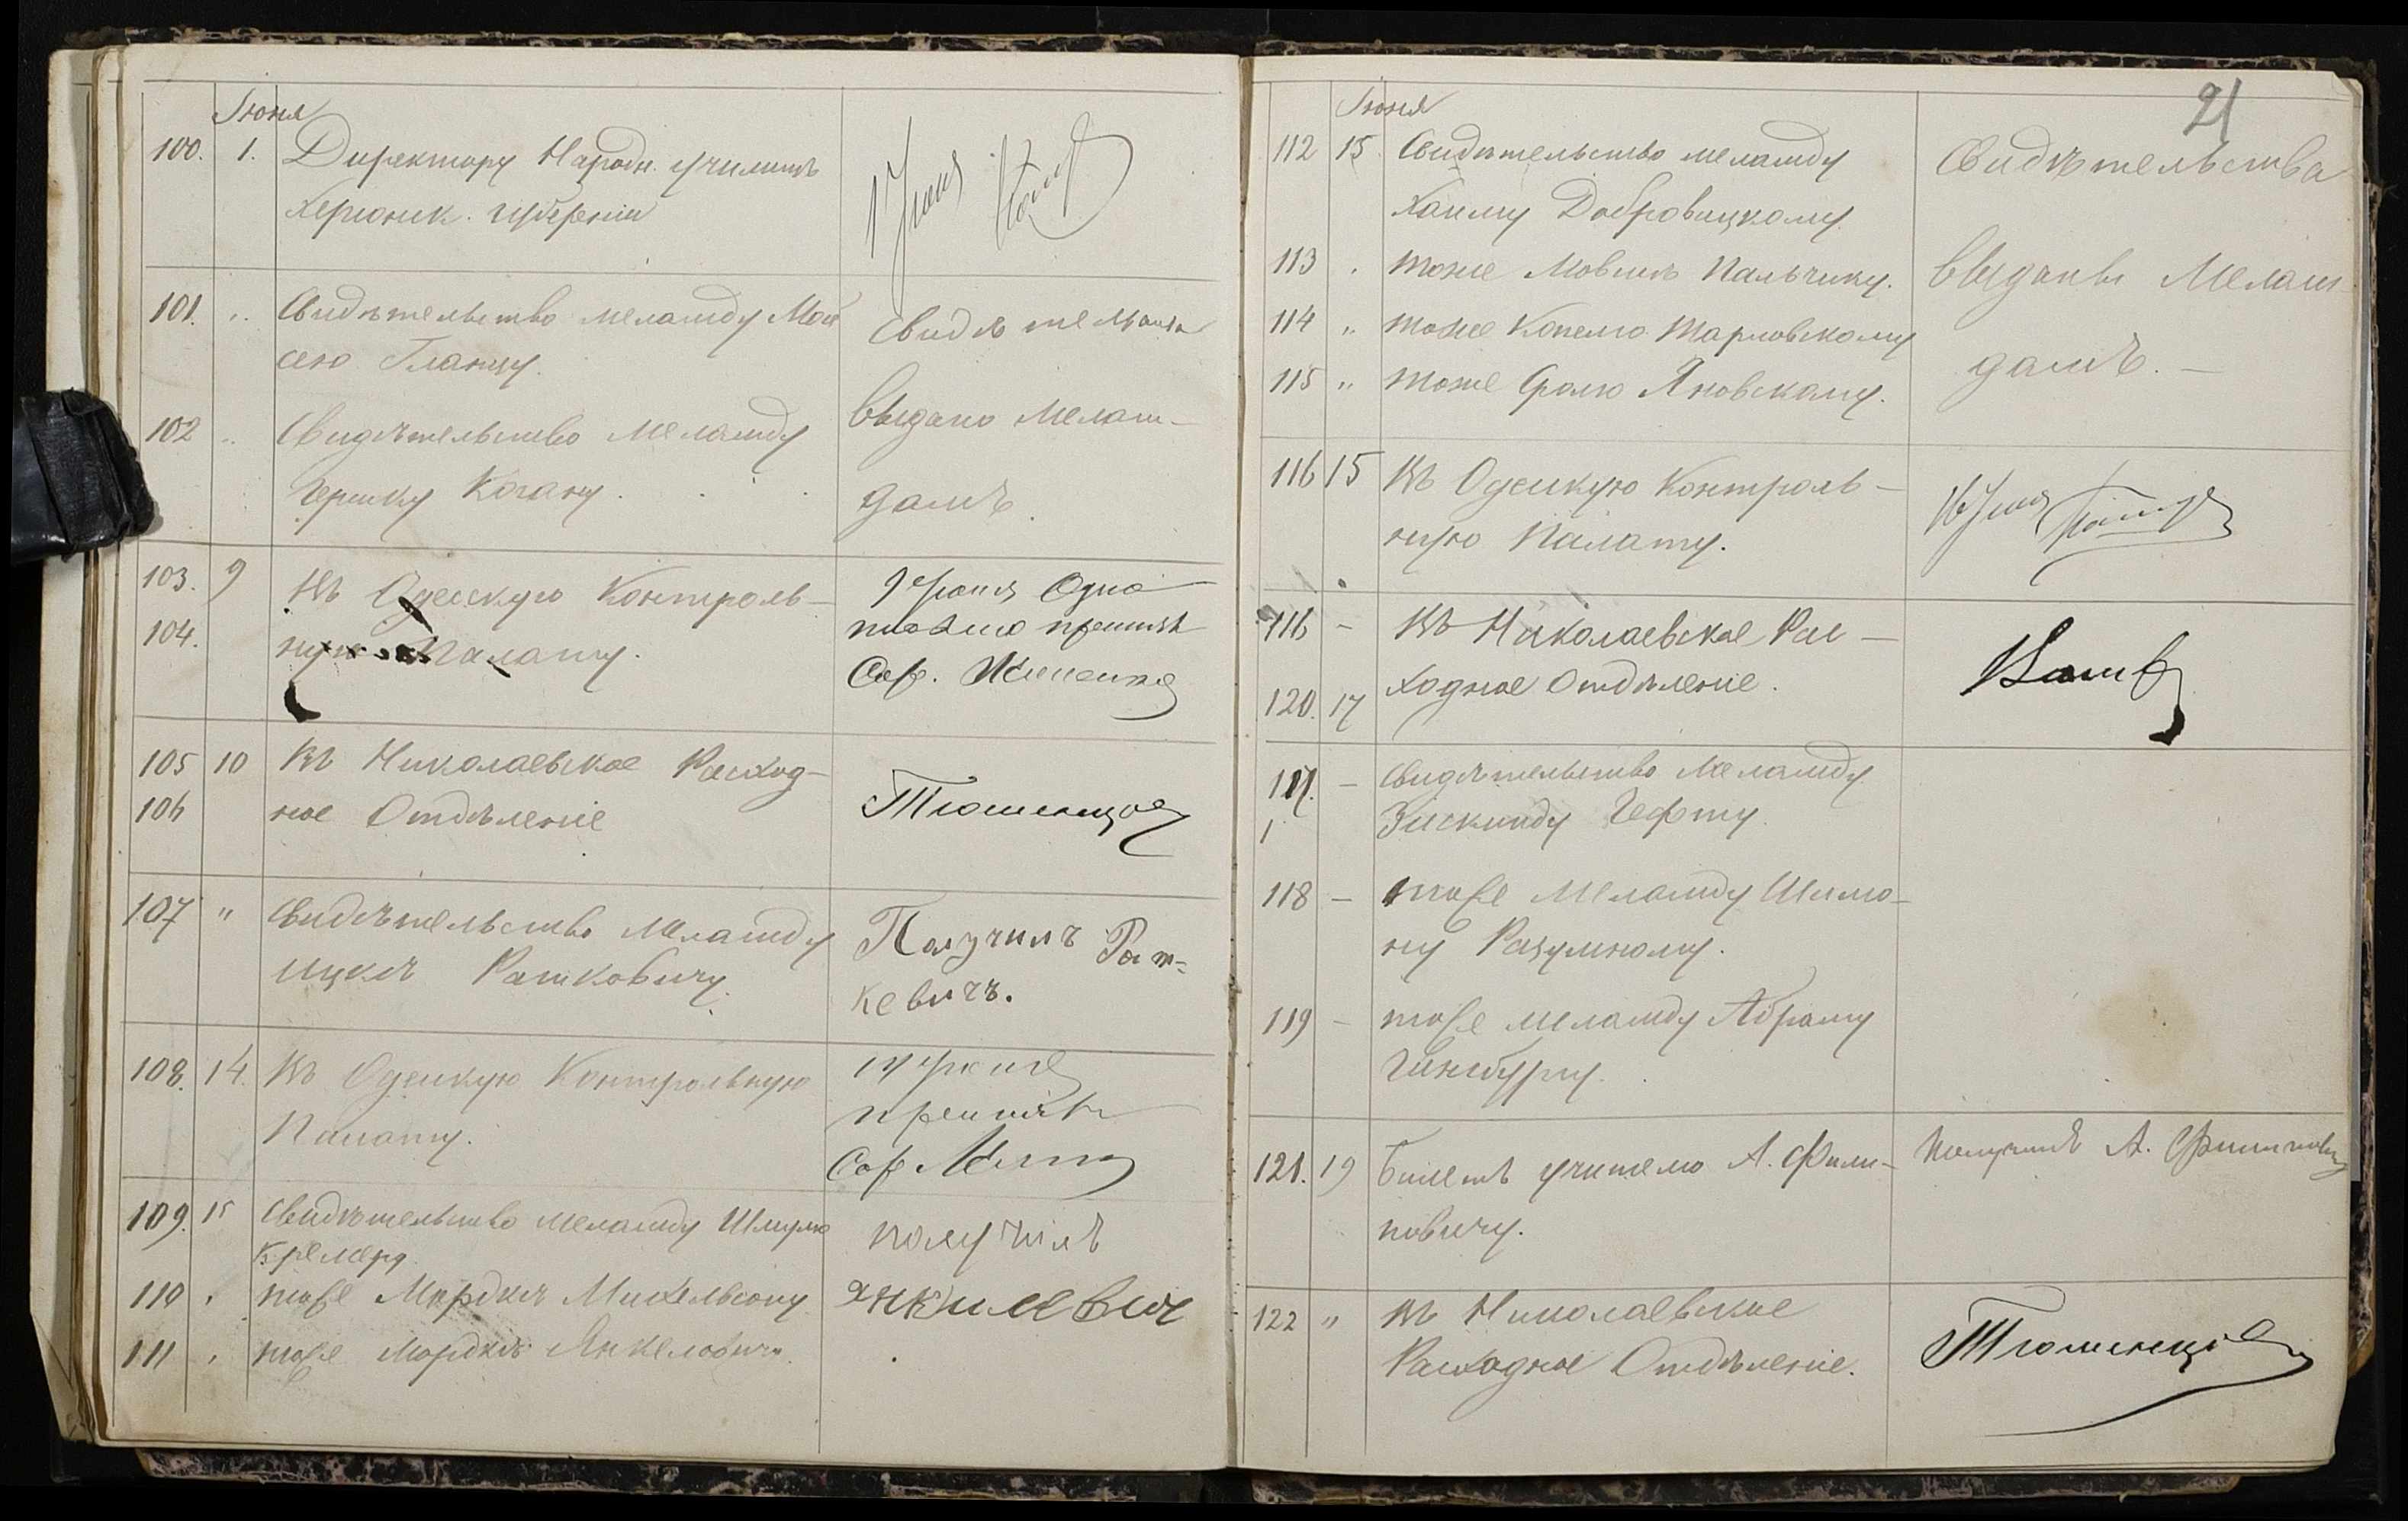 Іюня
100. 1. Директору Народн. училищъ
Херсонск. губерніи
1 Іюня
101. „ Свидѣтельство меламду Мои
сею Гланцу.
Свидѣтельства
102 „ Свидѣтельство меламду
выдано Мелам-
Гершку Когану.
дамъ.
103. 9 Въ Одесскую Контроль-
9 Іюня Одно
104. ную Палату.
письмо принялъ
105 10 Въ Николаевское Расход-
106 ное Отдѣленіе
Тюменцов
107 „ Свидѣтельство меламду
Ицкѣ Рашковичу.
Получилъ Раш-
кевичъ.
108. 14. Въ Одесскую Контрольную
Палату.
14 Іюня
принялъ
109. 15 Свидѣтельство меламду Шмулю
Кремеру
получилъ
110 „ тоже Мордкѣ Михельсону
111 „ тоже Мордкѣ Янкеловичу.
21
Іюня
112 15 Свидѣтельство меламду
Хаиму Добровицкому.
Свидѣтельства
113 „ тоже Мовшѣ Пальчику.
выданы Мелам
114 „ тоже Копелю Тарловскому
дамъ. —
115 „ тоже Сролю Яновскому.
116 15 Въ Одесскую Контроль-
ную Палату.
16 Іюня
116 - Въ Николаевское Рас-
120. 17 ходное Отдѣленіе.
117. - Свидѣтельство меламду
Зискинду Гефту.
118 - тоже меламду Шимо-
ну Разумному.
119 - тоже меламду Абраму
Гинсбургу.
121. 19 Билетъ учителю А. Фили-
повичу.
Получилъ А. Филипович
122 „ Въ Николаевское
Расходное Отдѣленіе.
Тюменцов